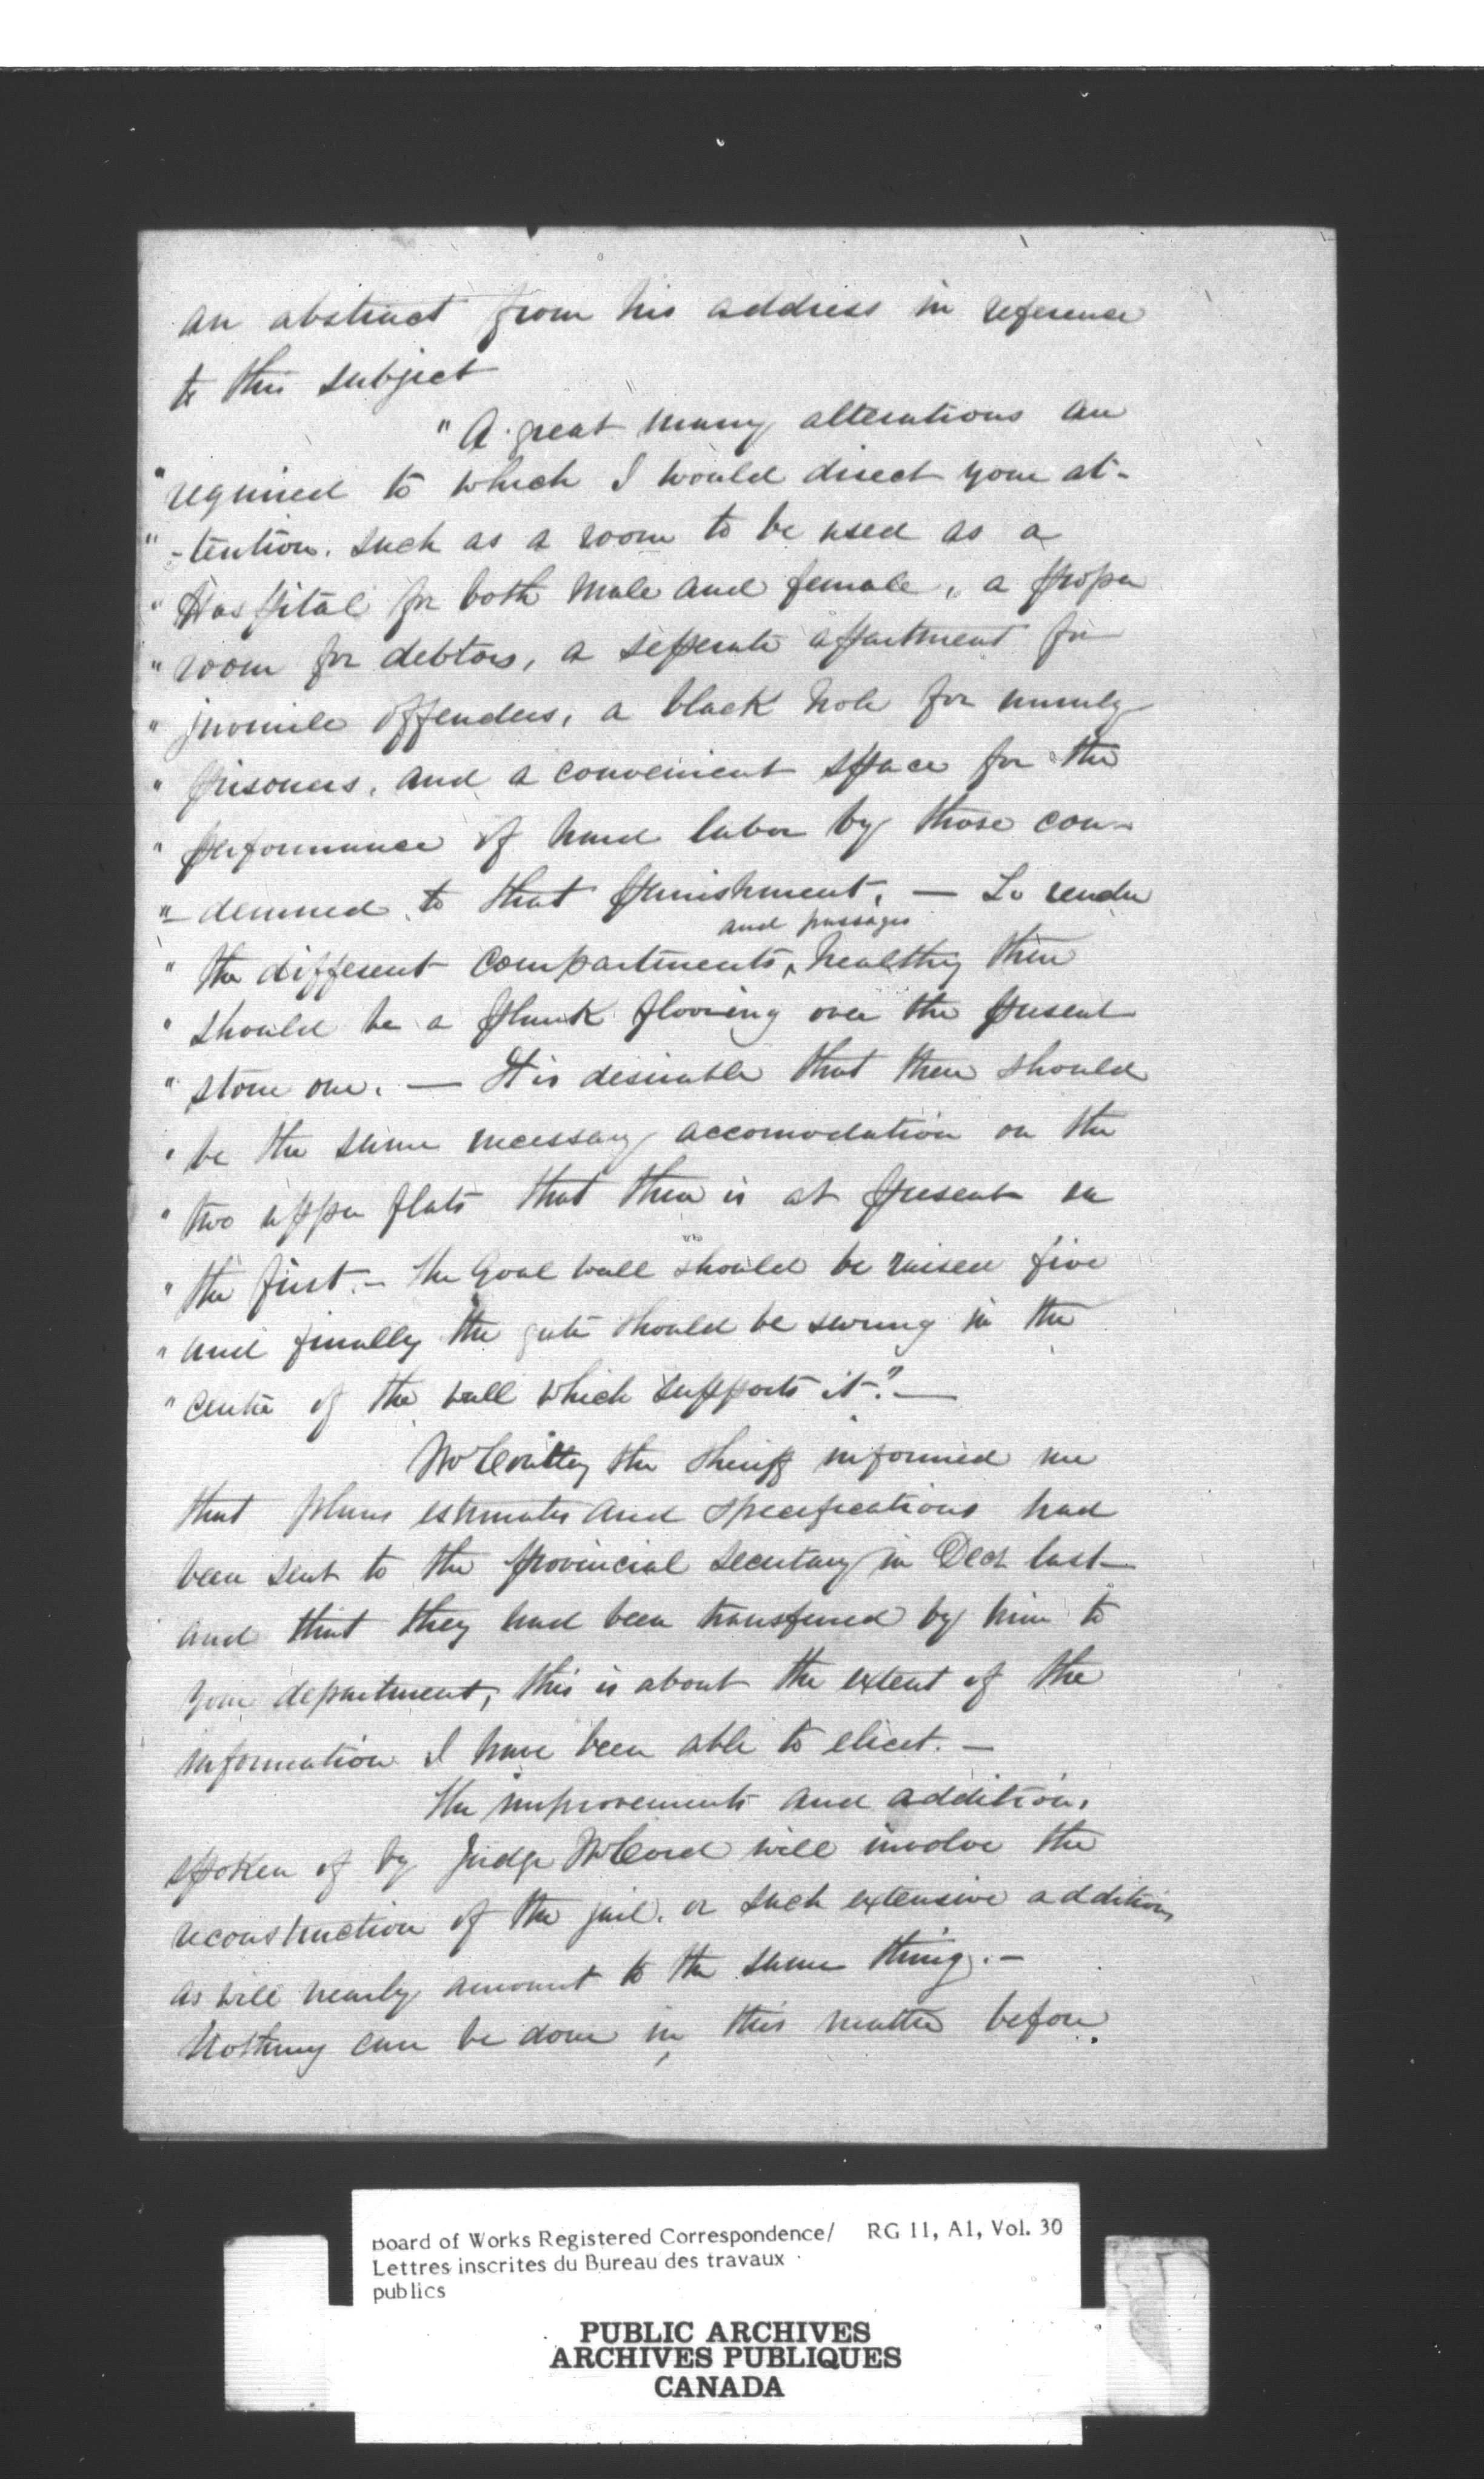 an abstract from his address in reference
to this subject
" A great many alterations are
" required to which I would direct your at-
" -tention. such as a room to be used as a
" Hospital for both male and female, a proper
" room for debtors, a seperate apartment for
" juvenile offenders, a black hole for unruly
" prisoners, and a convenient space for the
" performance of hard labor by those con-
"- demned to that punishment. — To render
and passages
" the different compartments, healthy there
" should be a plank flooring over the present
" stone one. — It is desirable that there should
" be the same necessary accomodation on the
" two upper flats that there is at present on
" the first. - the Goal wall should be raised five
" and finally the gate should be swung in the
" centre of the wall which supports it". —
the sheriff informed me
that plans estimates and specifications had
been sent to the provincial secretary in Decr last
and that they had been transferred by him to
your department, this is about the extent of the
information I have been able to elicit. —
the improvements and additions
spoken of by Judge McCord will involve the
reconstruction of the jail. or such extensive additions
as will nearly amount to the same thing. —
Nothing can be done in this matter before
Board of Works Registered Correspondence/ RG 11, A1, Vol. 30
Lettres inscrites du Bureau des travaux
publics
PUBLIC ARCHIVES
ARCHIVES PUBLIQUES
CANADA